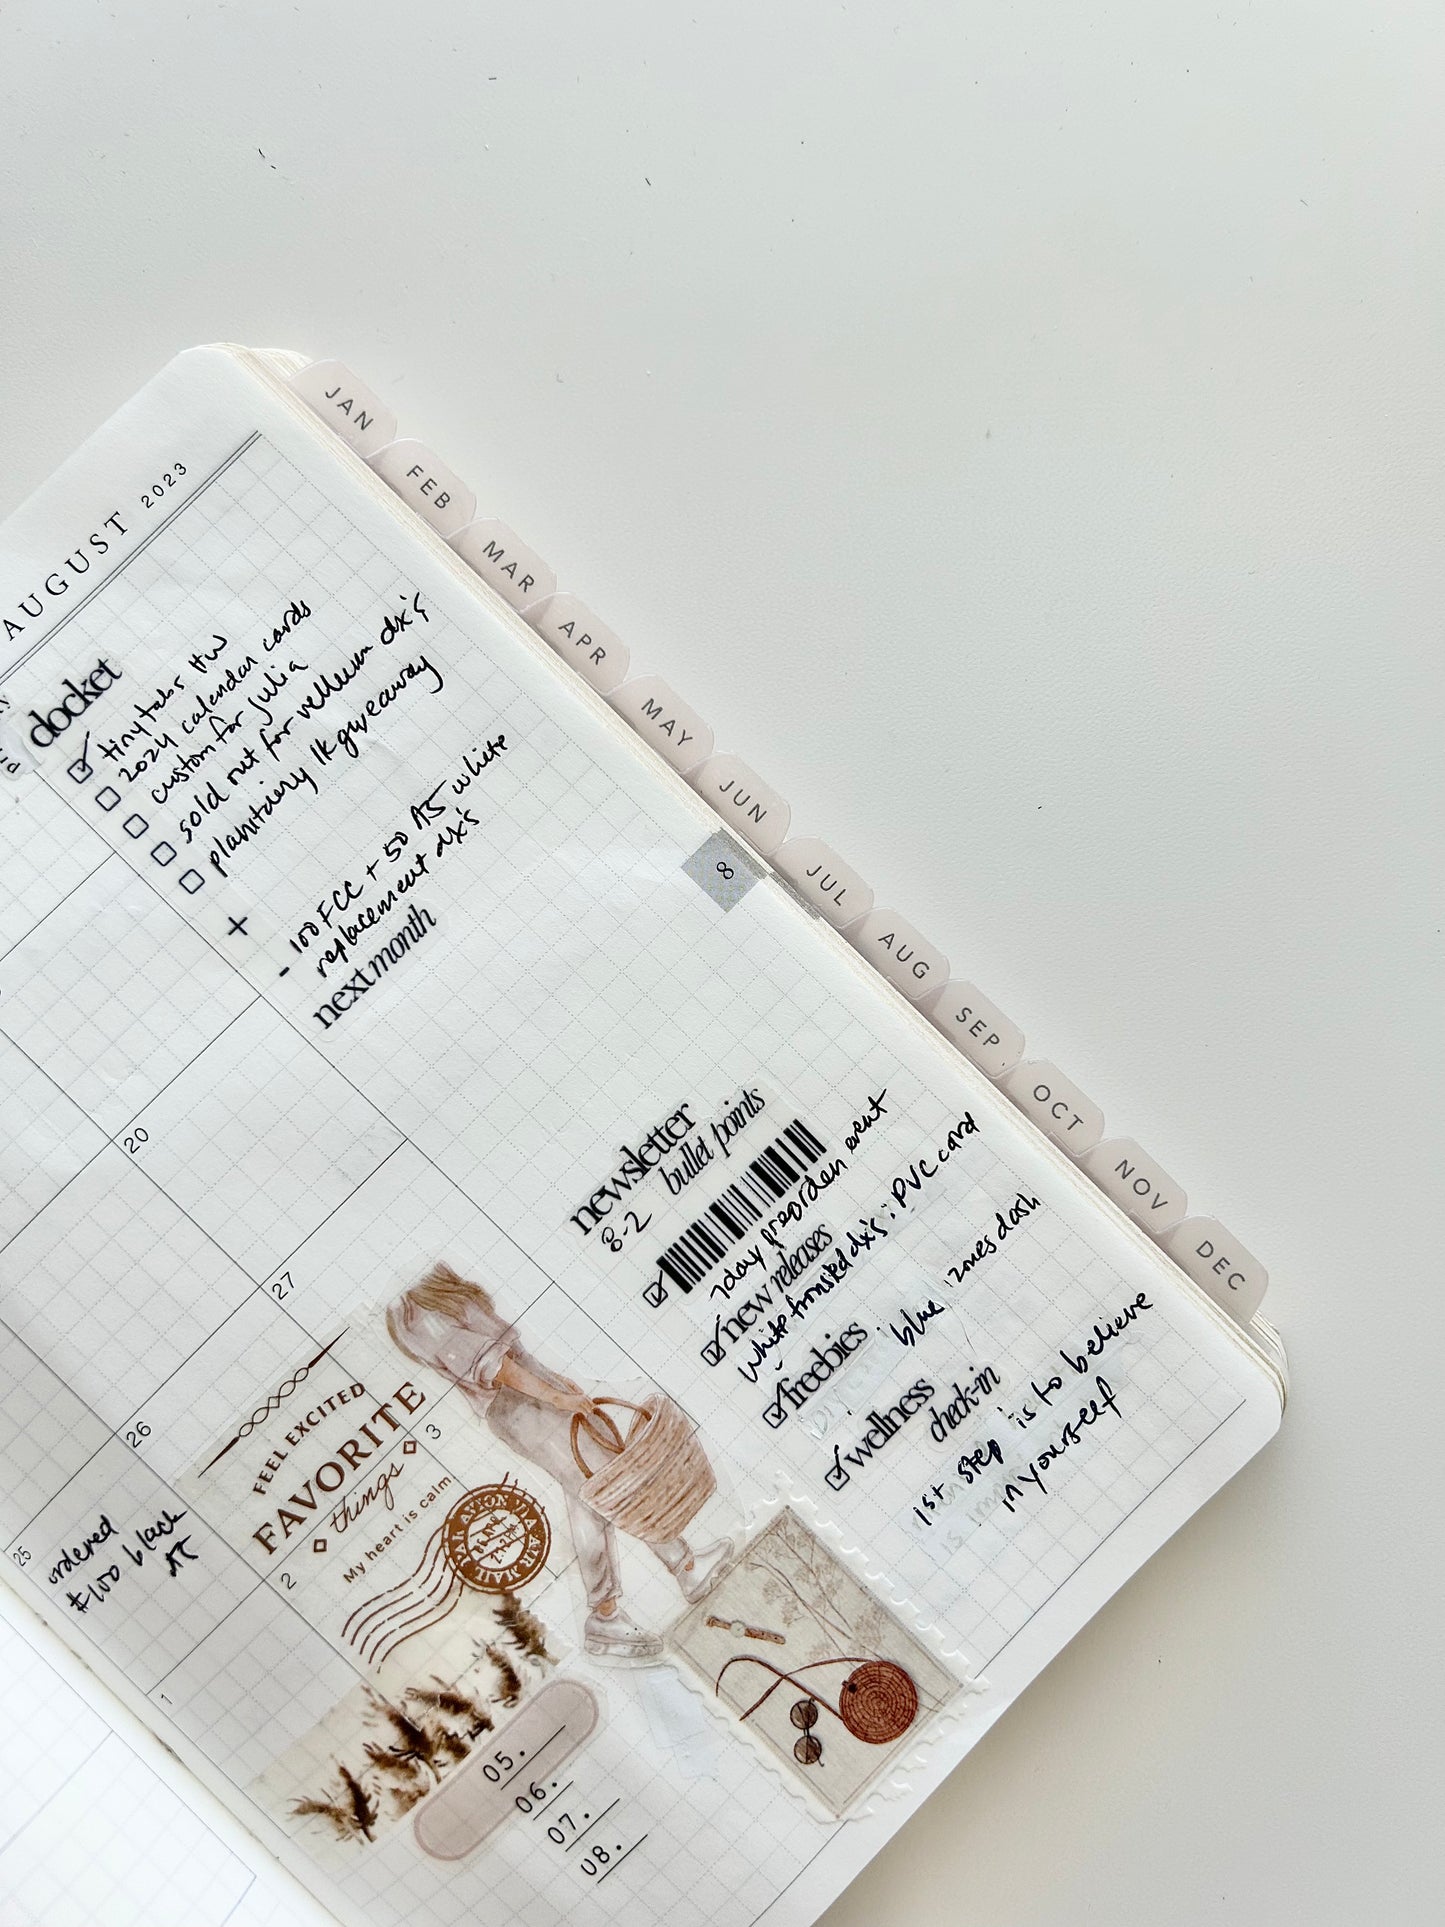 AUGUST 2023
docket
tiny tabs HW
2024 calendar cards
custom for julia
sold out for vellum dx's
planitdiary 1k giveaway
+
- 100 FCC + 50 A5 white
replacement dx's
next month
20
27
26
25
ordered
#100 black
1
2
3
FEEL EXCITED
FAVORITE
things
My heart is calm
PAR AVION VIA AIR MAIL
05.
06.
07.
08.
newsletter
8-2 bullet points
7 day preorder event
new releases
white frosted dx's : PVC card
freebies : blue
wellness
check-in
1st step is to believe
in yourself
8
JAN
FEB
MAR
APR
MAY
JUN
JUL
AUG
SEP
OCT
NOV
DEC